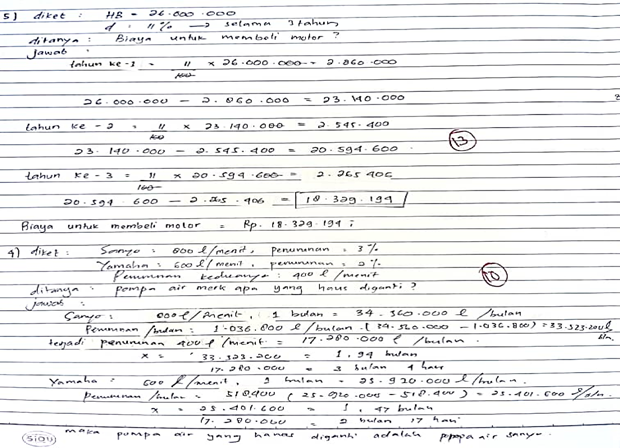 5) diket : HB = 26.000.000
d : 11% → selama 3 tahun
ditanya : Biaya untuk membeli motor ?
Jawab :
tahun ke-1 = 11/100 × 26.000.000 = 2.860.000
26.000.000 - 2.860.000 = 23.140.000
tahun ke - 2 = 11/100 × 23.140.000 = 2.545.400
23.140.000 - 2.545.400 = 20.594.600
13
tahun ke - 3 = 11/100 × 20.594.600 = 2.265.406
20.594.600 - 2.265.406 = 18.329.194
Biaya untuk membeli motor = Rp. 18.329.194 ;
4) diket : Sanyo : 800 l/menit, penurunan = 3%
Yamaha : 600 l/menit, penurunan = 2%
Penurunan keduanya : 400 l/menit
10
ditanya : pompa air merk apa yang harus diganti ?
jawab :
Sanyo : 800 l/menit, 1 bulan = 34.560.000 l/bulan
Penurunan /bulan : 1.036.800 l/bulan (34.560.000 - 1.036.800) = 33.523.200 l/bln.
terjadi penurunan 400 l/menit = 17.280.000 l/bulan.
x = 33.523.200 / 17.280.000 = 1,94 bulan
= 3 bulan 4 hari
Yamaha : 600 l/menit, 1 bulan = 25.920.000 l/bulan.
Penurunan /bulan = 518.400 (25.920.000 - 518.400) = 25.401.600 l/bln.
x = 25.401.600 / 17.280.000 = 1,47 bulan
= 2 bulan 17 hari
maka pompa air yang harus diganti adalah pompa air sanyo.